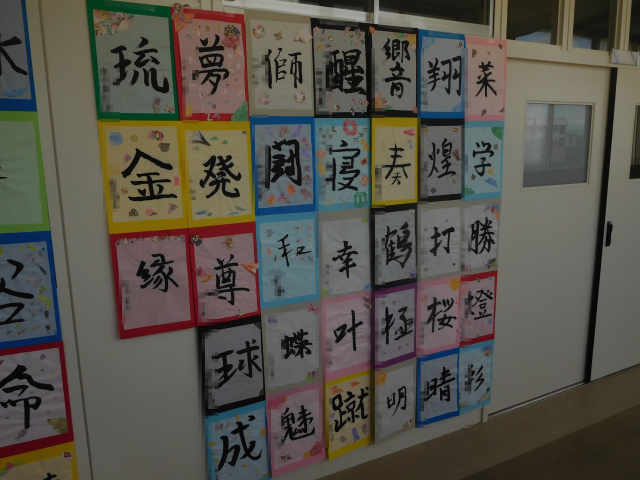 琉 夢 獅 醒 響 翔 菜
金 発 闘 寝 奏 煌 学
縁 尊 和 幸 鶴 打 勝
球 蝶 叶 極 桜 燈
成 魅 蹴 明 晴 彩
命